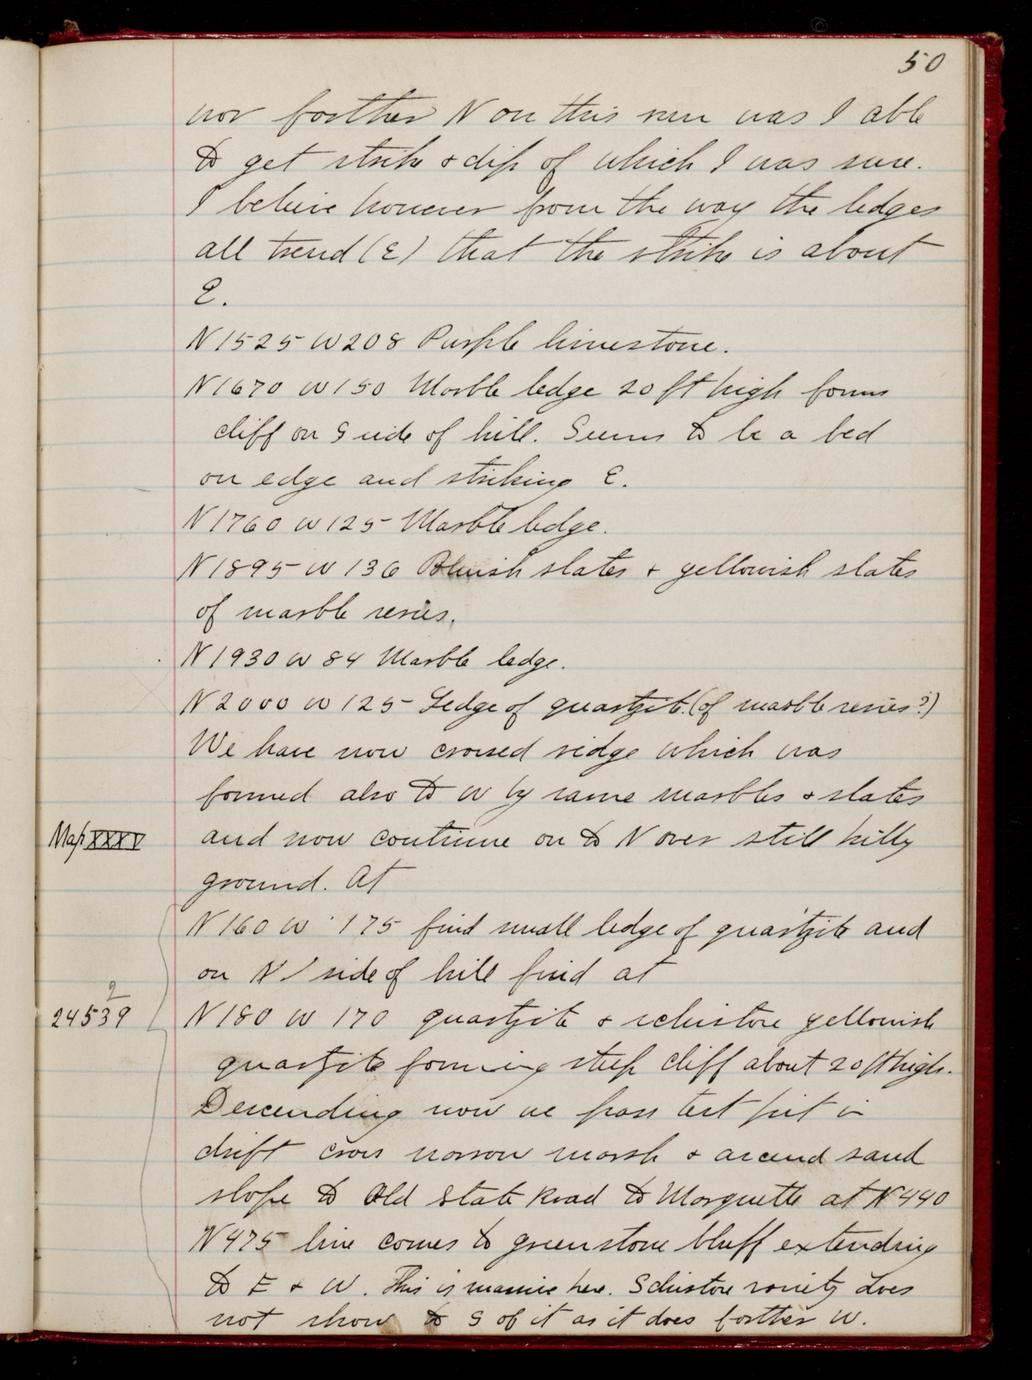 50
nor farther N on this run was I able
to get strike & dip of which I was sure.
I believe however from the way the ledges
all trend (E) that the strike is about
E.
N1525 W208 Purple limestone.
N1670 W150 Marble ledge 20 ft high forms
cliff on S side of hill. Seems to be a bed
on edge and striking E.
N1760 W125 Marble ledge.
N1895 W136 Bluish slates & yellowish slates
of marble series.
N1930 W 84 Marble ledge.
N2000 W125 Ledge of quartzite.(of marble series?)
We have now crossed ridge which was
formed also to W by same marbles & slates
Map XXXV and now continue on to N over still hilly
ground. At
N160 W 175 find small ledge of quartzite and
on N side of hill find at
2
24539 N180 W 170 quartzite & schistose yellowish
quartzite forming steep cliff about 20 ft high.
Descending now we pass test pit in
drift cross narrow marsh & ascend sand
slope to Old State Road to Marquette at N440
N475 line comes to greenstone bluff extending
to E & W. This is massive here. Schistose variety does
not show to S of it as it does farther W.